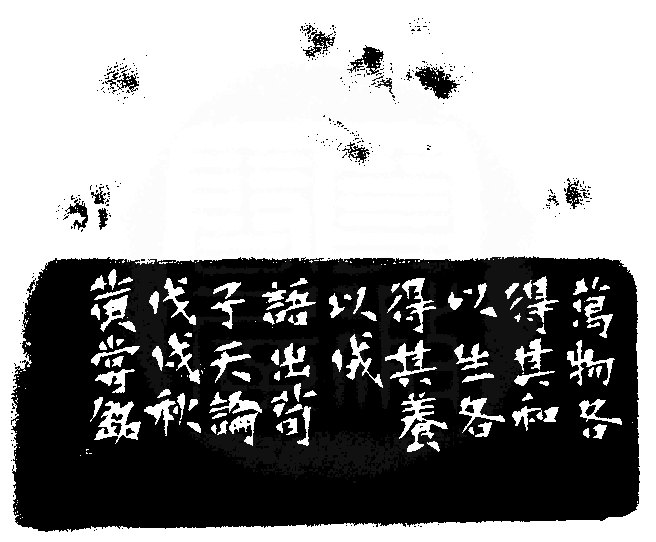 萬物各
得其和
以生各
得其養
以成
語出荀
子天論
戊戌秋
黃嘗銘